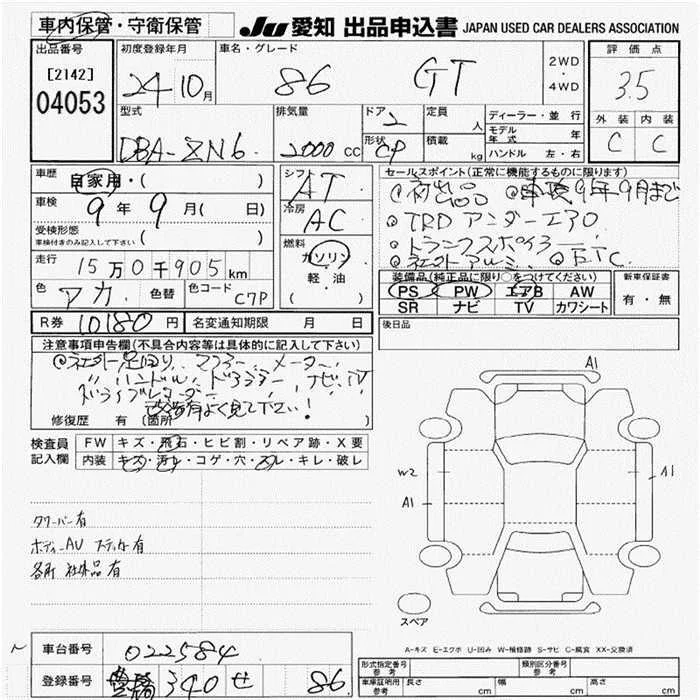 車内保管・守衛保管
JU 愛知 出品申込書 JAPAN USED CAR DEALERS ASSOCIATION
出品番号
[2142]
04053
初度登録年月
24 10月
車名・グレード
86 GT
2WD
・
4WD
評価点
3.5
外装 内装
C C
型式
DBA-ZN6
排気量
2000 cc
ドア
2
形状
CP
定員
人
積載
kg
ディーラー・並行
モデル年式 年
ハンドル 左・右
車歴
自家用・( )
車検
9年 9月( 日)
受検形態
車検付きのみ記入して下さい ( )
走行
15万0千905km
色
アカ
色替
色コード
C7P
シフト
AT
冷房
AC
燃料
ガソリン
軽・油
( )
セールスポイント(正常に機能するものに限ります)
◎初出品 ◎車検9年9月まで
◎TRD アンダーエアロ
◎トランクスポイラー
◎社外アルミ ◎ETC
装備品(純正品に限り○をつけてください)
PS PW エアB AW
SR ナビ TV カワシート
新車保証書
有・無
R券 10180円
名変通知期限 月 日
後日品
注意事項申告欄(不具合内容等は具体的に記入して下さい)
◎社外足回り、マフラー、メーター
〃 ハンドル、ナビ、TV
ドライブレコーダー
改造有よく見て下さい!
修復歴 有 [箇所 ]
検査員記入欄
FW キズ・飛石・ヒビ割・リペア跡・X要
内装 キズ・汚れ・コゲ・穴・スレ・キレ・破レ
タワーバー有
ボディーAU ステッカー有
各所 社外品有
A1
W2
A1
A1
スペア
A-キズ E-エクボ U-凹み W-補修跡 S-サビ C-腐食 XX-交換済
車台番号 022584
登録番号 豊橋 340 せ 86
形式指定番号 参考
類別区分番号 参考
車庫証明用参考 長さ cm 幅 cm 高さ cm